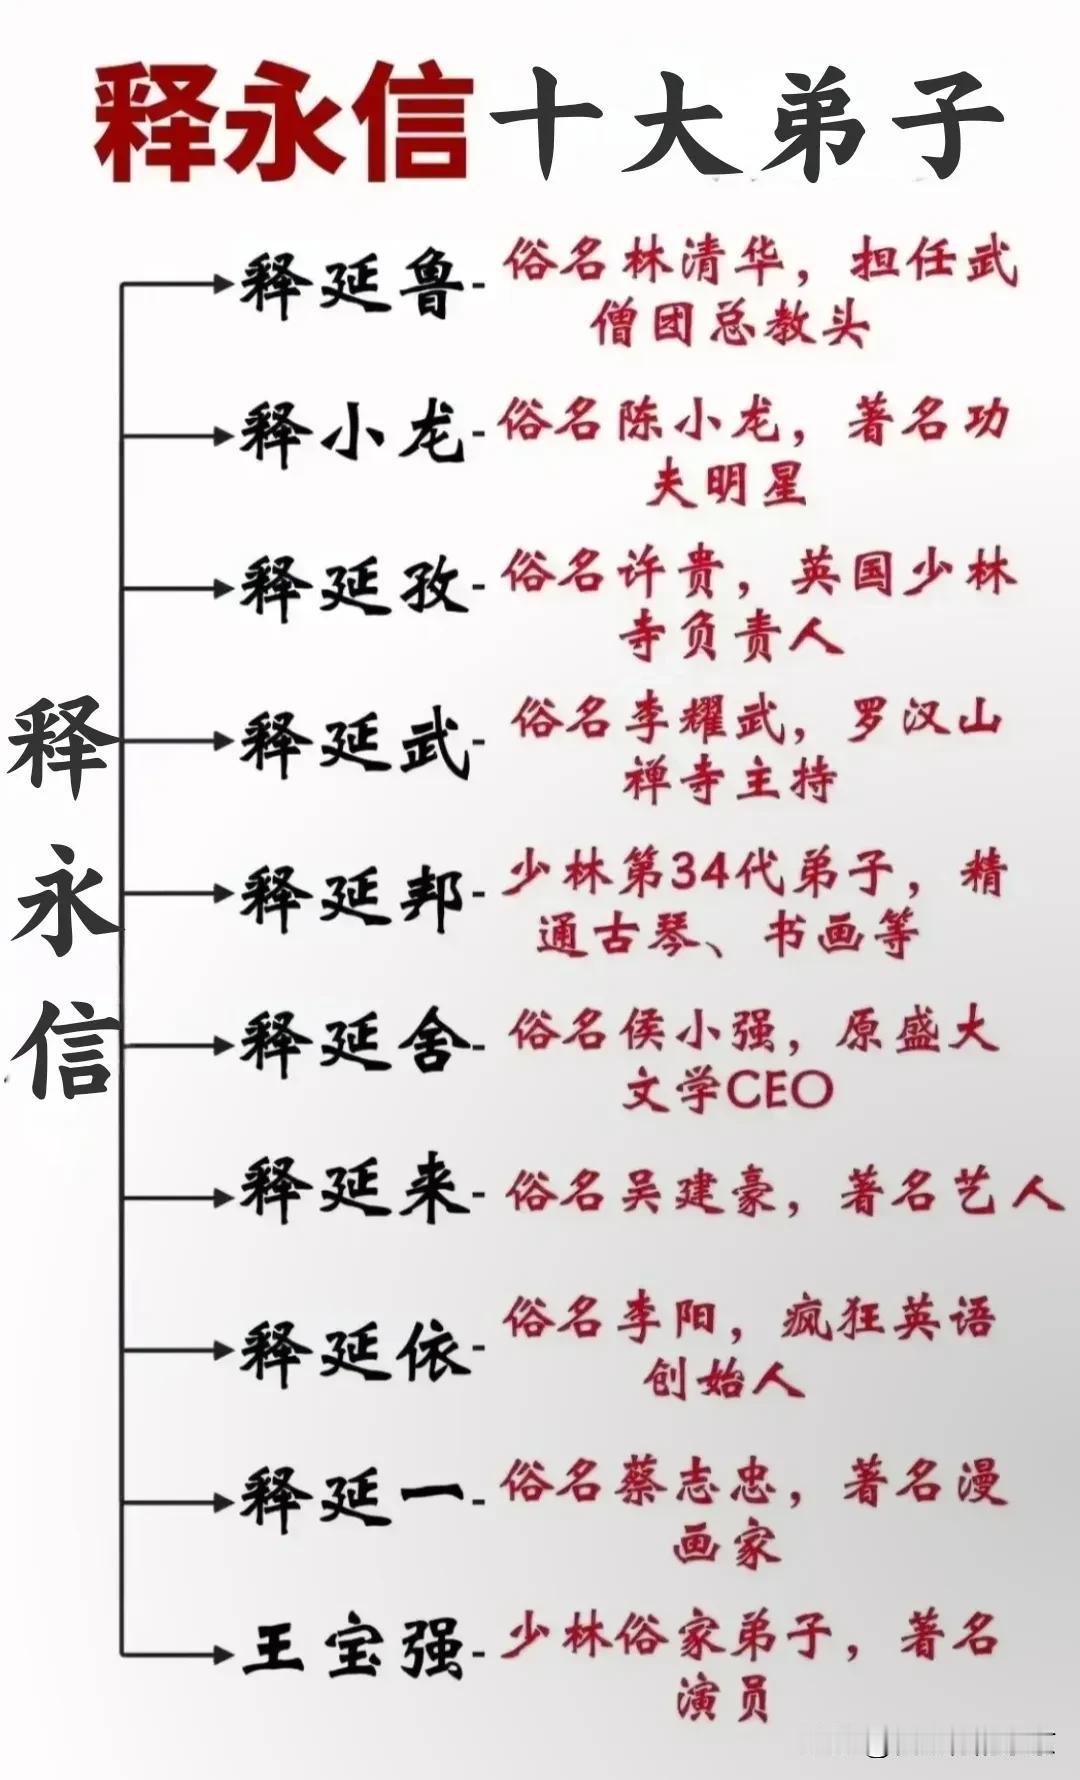 释永信十大弟子
释永信
释延鲁-
俗名林清华，担任武
僧团总教头
释小龙-
俗名陈小龙，著名功
夫明星
释延孜-
俗名许贵，英国少林
寺负责人
释延武-
俗名李耀武，罗汉山
禅寺主持
释延邦-
少林第34代弟子，精
通古琴、书画等
释延舍-
俗名侯小强，原盛大
文学CEO
释延来-
俗名吴建豪，著名艺人
释延依-
俗名李阳，疯狂英语
创始人
释延一-
俗名蔡志忠，著名漫
画家
王宝强-
少林俗家弟子，著名
演员